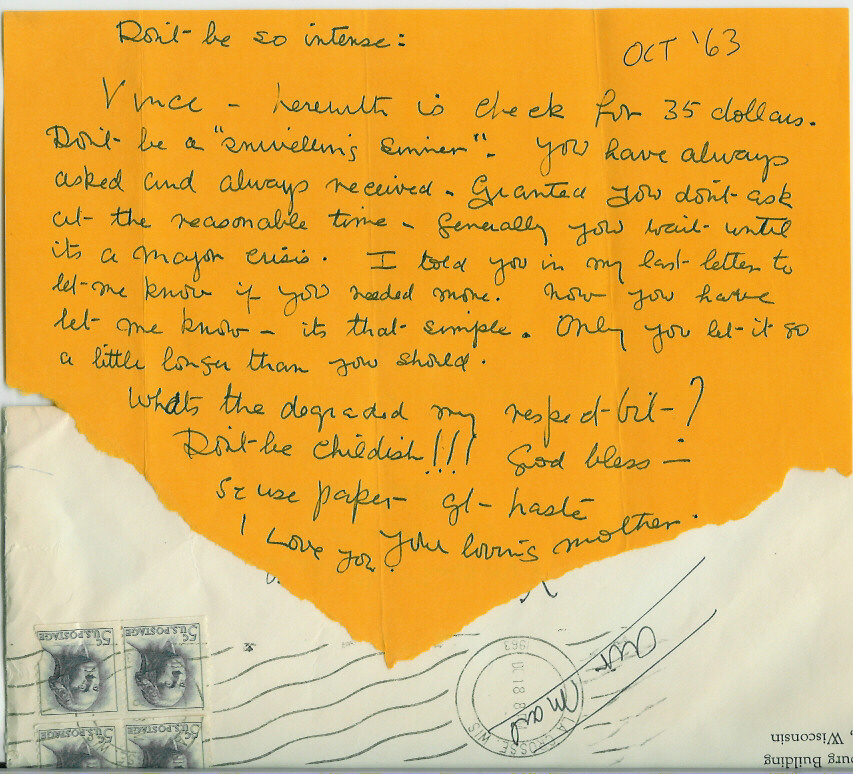 Don't be so intense:
OCT '63
Vince - herewith is check for 35 dollars.
Don't be a "snivelling sinner". You have always
asked and always received. Granted you don't ask
at the reasonable time - generally you wait until
its a major crisis. I told you in my last letter to
let me know if you needed more. now you have
let me know - its that simple. Only you let it go
a little longer than you should.
Whats the degraded my respect bit-?
Don't be childish!!! God bless -
use paper haste
I Love you your loving mother.
5¢ U.S. POSTAGE
5¢ U.S. POSTAGE
5¢ U.S. POSTAGE
5¢ U.S. POSTAGE
LA CROSSE, WIS
18
1963
Air Mail
burg Building
, Wisconsin